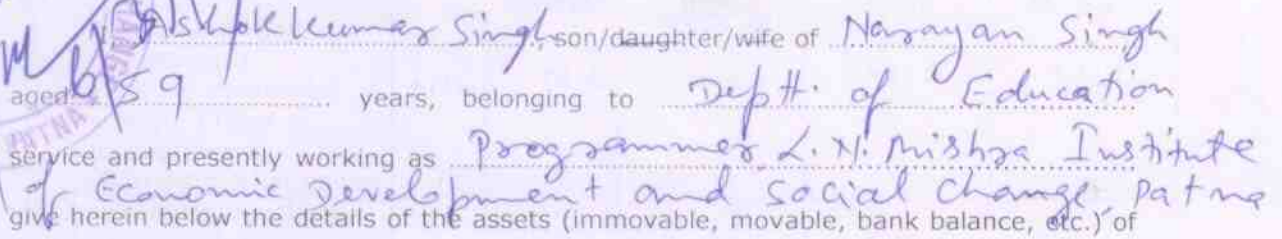 Ashok Kumar Singh, son/daughter/wife of Narayan Singh
aged 59 years, belonging to Deptt. of Education
service and presently working as Programmer L. N. Mishra Institute
of Economic Development and Social Change, Patna
give herein below the details of the assets (immovable, movable, bank balance, etc.) of
PATNA